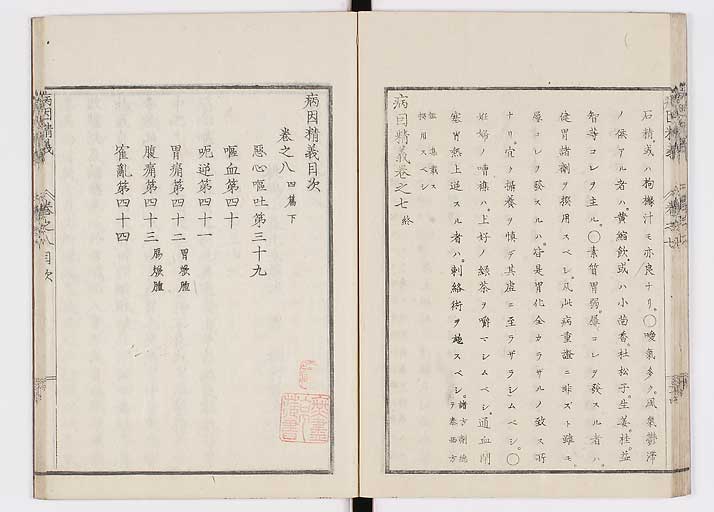 石精或ハ枸櫞汁モ亦良ナリ。〇噯氣多ク。風氣鬱滞
ノ候アル者ハ。黄縮飲。或ハ小茴香。杜松子。生姜。桂。益
智等コレヲ主ル。〇素質胃弱。屡コレヲ發スル者ハ。
健胃諸劑ヲ撰用スベシ。又此病重證ニ非ズト雖モ。
屡コレヲ發スルハ。皆是胃化全カラザルノ致ス所
ナリ。宜ク攝養ヲ慎テ其虚ニ至ラザラシムベシ。〇
妊婦ノ嘈雜ハ。上好ノ緑茶ヲ嚼マシムベシ。通血閉
塞胃熱上逆スル者ハ。刺絡術ヲ施スベシ。諸方劑德
ヲ泰西方
鑑ニ載ス
撰用スベシ
病因精義巻之七 終
病因精義目次
巻之八 四篇下
惡心嘔吐第三十九
嘔血第四十
呃逆第四十一
胃痛第四十二 胃焮腫
腹痛第四十三 腸焮腫
霍亂第四十四
病因精義 巻之八 目次